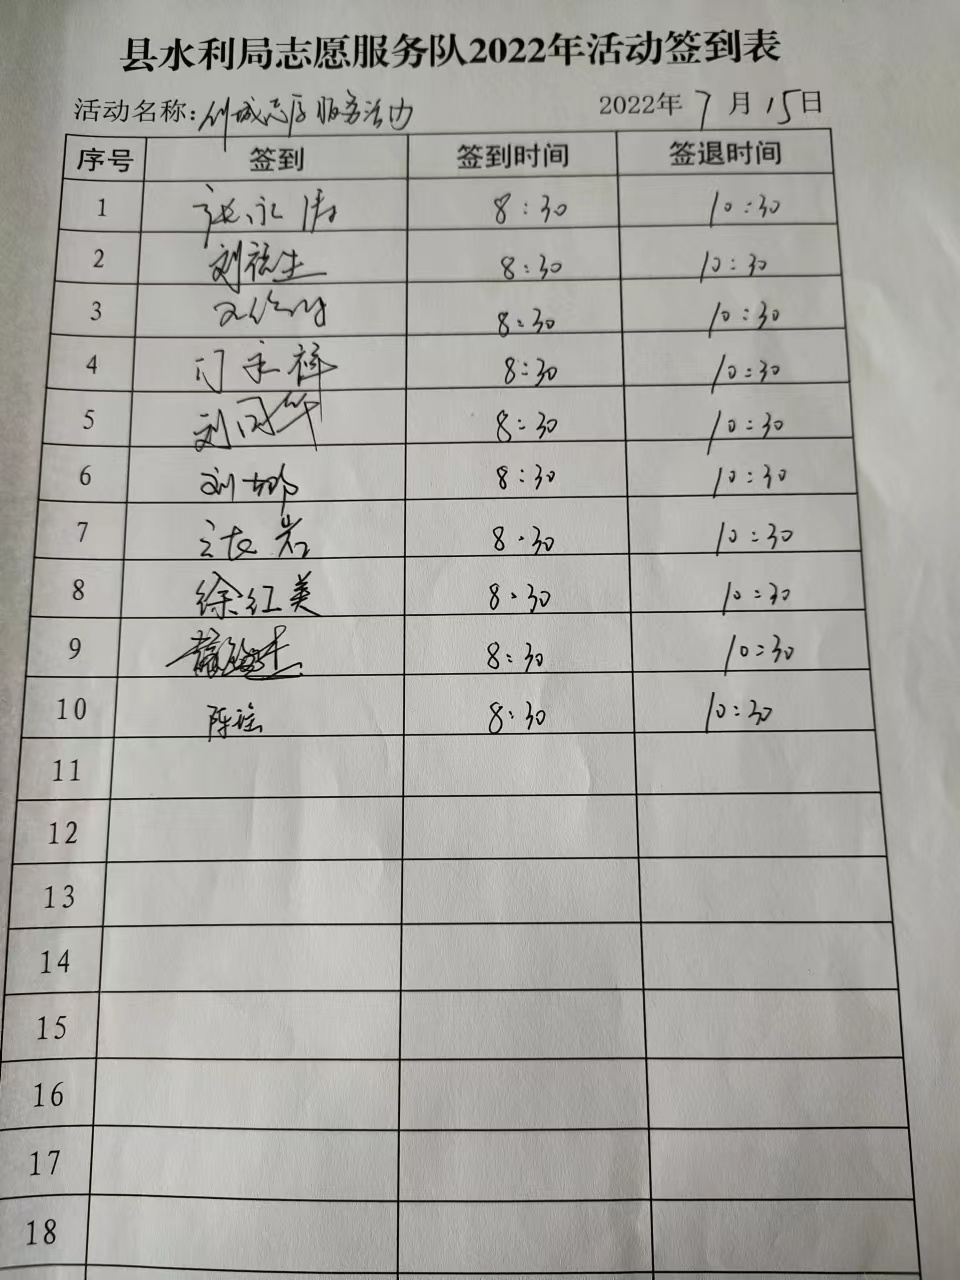 县水利局志愿服务队2022年活动签到表
活动名称:创城志愿服务活动 2022年7月15日
序号 签到 签到时间 签退时间
1 张永 8:30 10:30
2 刘 8:30 10:30
3 8:30 10:30
4 门永祥 8:30 10:30
5 刘国华 8:30 10:30
6 刘 8:30 10:30
7 岩 8:30 10:30
8 徐红美 8:30 10:30
9 8:30 10:30
10 陈瑶 8:30 10:30
11
12
13
14
15
16
17
18